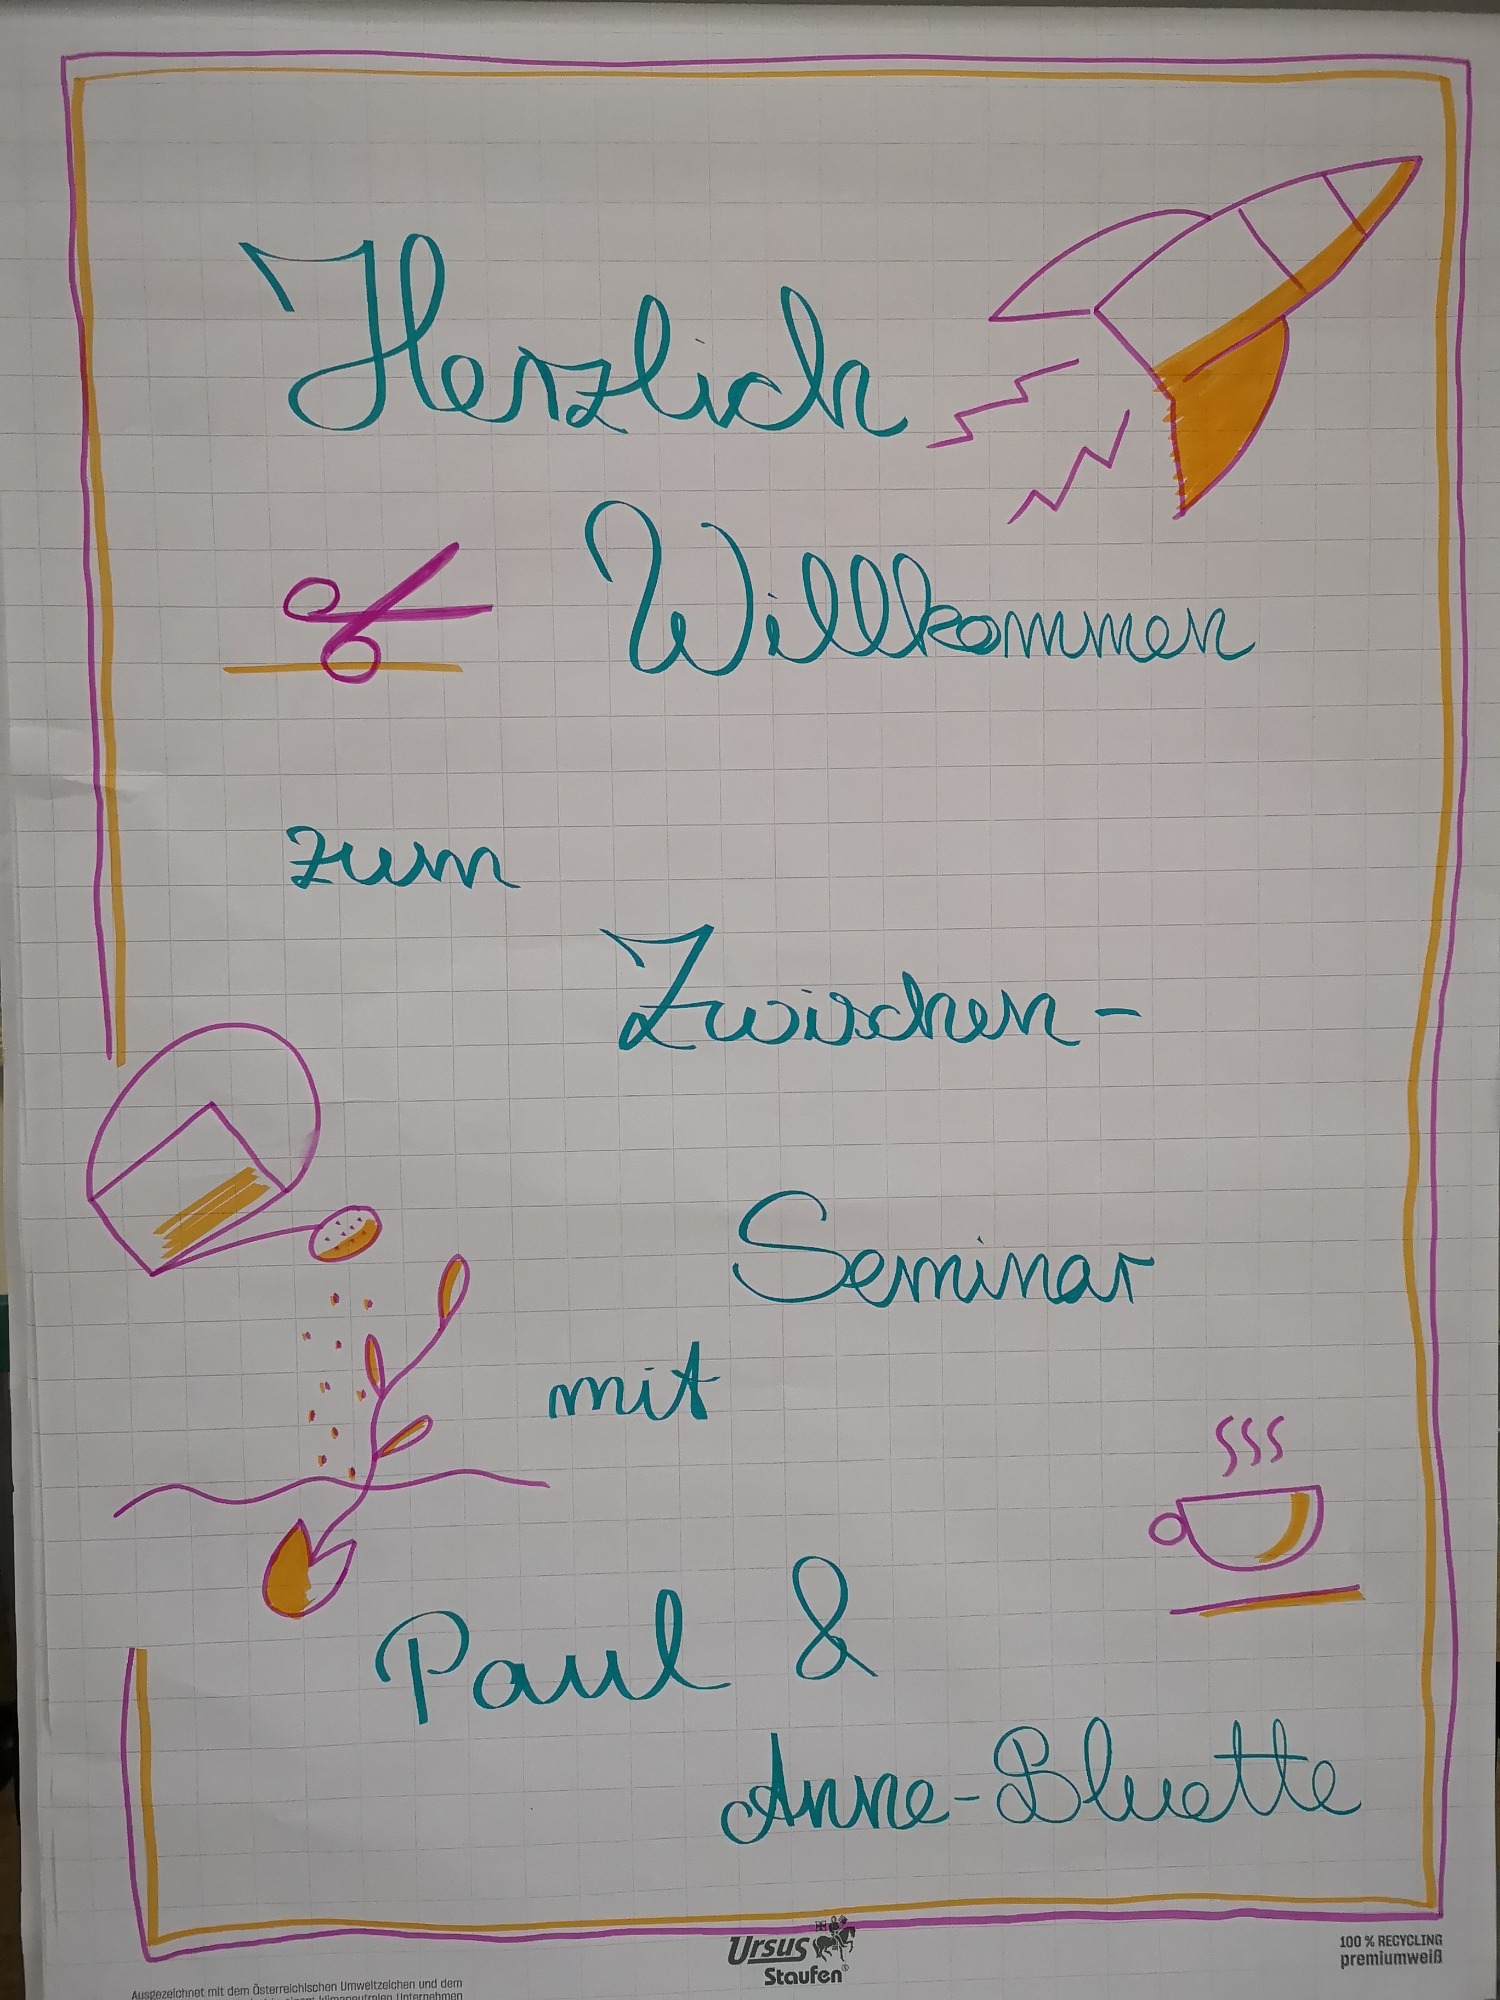 Herzlich
Willkommen
zum
Zwischen-
Seminar
mit
Paul &
Anne-Bluette
Ursus
Staufen®
100 % RECYCLING
premiumweiß
Ausgezeichnet mit dem Österreichischen Umweltzeichen und dem
klimaneutralen Unternehmen